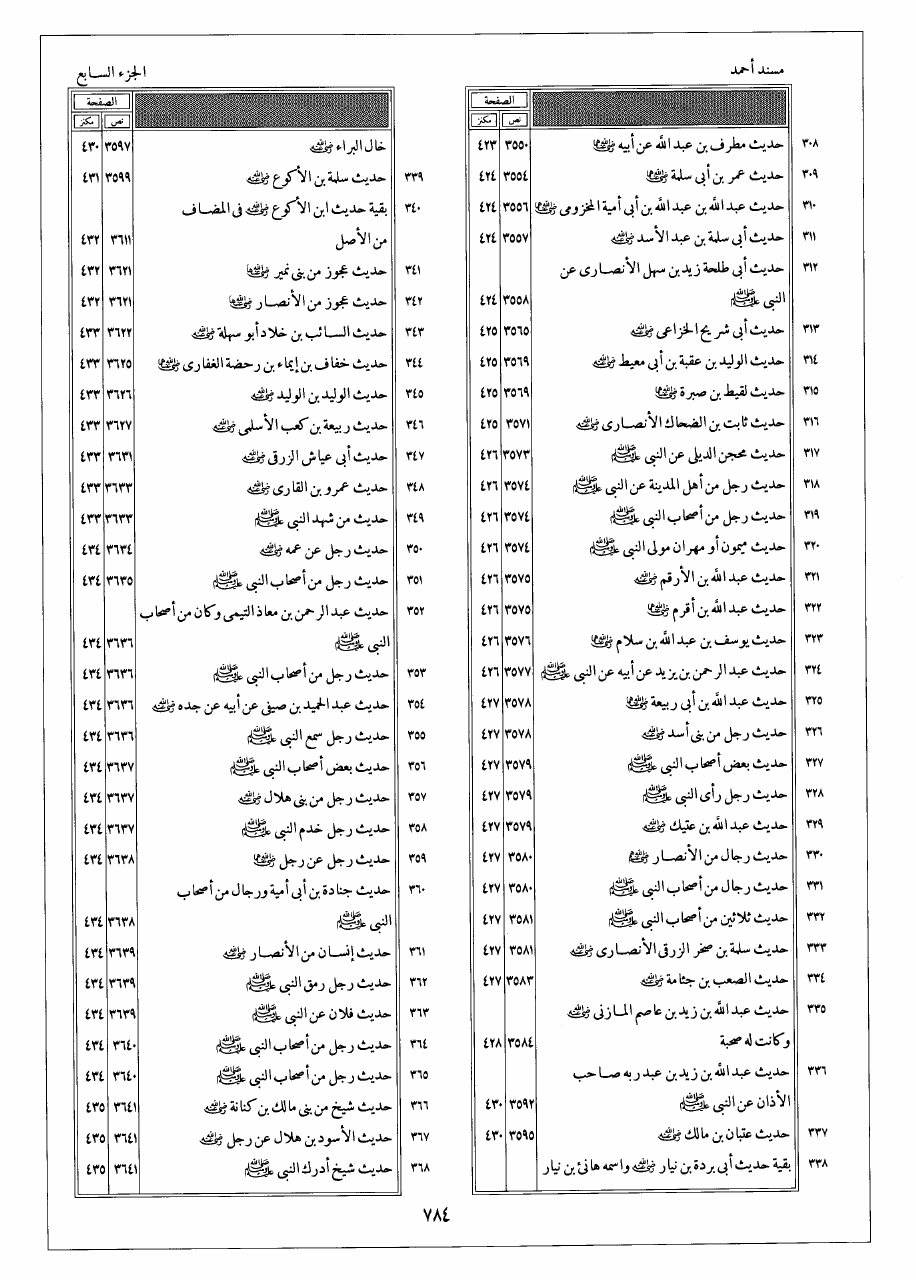 مسند أحمد
الجزء السابع
الصفحة
نص مكنز
٣٠٨ حديث مطرف بن عبد الله عن أبيه ﵄ ٣٥٥٠ ٤٢٣
٣٠٩ حديث عمر بن أبي سلمة ﵄ ٣٥٥٤ ٤٢٤
٣١٠ حديث عبد الله بن عبد الله بن أبي أمية المخزومى ﵄ ٣٥٥٦ ٤٢٤
٣١١ حديث أبي سلمة بن عبد الأسد ﵁ ٣٥٥٧ ٤٢٤
٣١٢ حديث أبي طلحة زيد بن سهل الأنصارى عن
النبي ﷺ ٣٥٥٨ ٤٢٤
٣١٣ حديث أبي شريح الخزاعى ﵁ ٣٥٦٥ ٤٢٥
٣١٤ حديث الوليد بن عقبة بن أبي معيط ﵁ ٣٥٦٩ ٤٢٥
٣١٥ حديث لقيط بن صبرة ﵄ ٣٥٦٩ ٤٢٥
٣١٦ حديث ثابت بن الضحاك الأنصارى ﵁ ٣٥٧١ ٤٢٥
٣١٧ حديث محجن الديلى عن النبي ﷺ ٣٥٧٣ ٤٢٦
٣١٨ حديث رجل من أهل المدينة عن النبي ﷺ ٣٥٧٤ ٤٢٦
٣١٩ حديث رجل من أصحاب النبي ﷺ ٣٥٧٤ ٤٢٦
٣٢٠ حديث ميمون أو مهران مولى النبي ﷺ ٣٥٧٤ ٤٢٦
٣٢١ حديث عبد الله بن الأرقم ﵁ ٣٥٧٥ ٤٢٦
٣٢٢ حديث عبد الله بن أقرم ﵄ ٣٥٧٥ ٤٢٦
٣٢٣ حديث يوسف بن عبد الله بن سلام ﵄ ٣٥٧٦ ٤٢٦
٣٢٤ حديث عبد الرحمن بن يزيد عن أبيه عن النبي ﷺ ٣٥٧٧ ٤٢٦
٣٢٥ حديث عبد الله بن أبي ربيعة ﵄ ٣٥٧٨ ٤٢٧
٣٢٦ حديث رجل من بنى أسد ﵁ ٣٥٧٨ ٤٢٧
٣٢٧ حديث بعض أصحاب النبي ﷺ ٣٥٧٩ ٤٢٧
٣٢٨ حديث رجل رأى النبي ﷺ ٣٥٧٩ ٤٢٧
٣٢٩ حديث عبد الله بن عتيك ﵁ ٣٥٧٩ ٤٢٧
٣٣٠ حديث رجال من الأنصار ﵃ ٣٥٨٠ ٤٢٧
٣٣١ حديث رجال من أصحاب النبي ﷺ ٣٥٨٠ ٤٢٧
٣٣٢ حديث ثلاثين من أصحاب النبي ﷺ ٣٥٨١ ٤٢٧
٣٣٣ حديث سلمة بن صخر الزرقى الأنصارى ﵁ ٣٥٨١ ٤٢٧
٣٣٤ حديث الصعب بن جثامة ﵁ ٣٥٨٣ ٤٢٧
٣٣٥ حديث عبد الله بن زيد بن عاصم المازنى ﵁
وكانت له صحبة ٣٥٨٤ ٤٢٨
٣٣٦ حديث عبد الله بن زيد بن عبد ربه صاحب
الأذان عن النبي ﷺ ٣٥٩٢ ٤٣٠
٣٣٧ حديث عتبان بن مالك ﵁ ٣٥٩٥ ٤٣٠
٣٣٨ بقية حديث أبي بردة بن نيار ﵁ واسمه هانئ بن نيار
الصفحة
نص مكنز
خال البراء ﵁ ٣٥٩٧ ٤٣٠
٣٣٩ حديث سلمة بن الأكوع ﵁ ٣٥٩٩ ٤٣١
٣٤٠ بقية حديث ابن الأكوع ﵁ فى المضاف
من الأصل ٣٦١١ ٤٣٢
٣٤١ حديث عجوز من بنى نمير ﵂ ٣٦٢١ ٤٣٢
٣٤٢ حديث عجوز من الأنصار ﵂ ٣٦٢١ ٤٣٢
٣٤٣ حديث السائب بن خلاد أبو سهلة ﵁ ٣٦٢٢ ٤٣٣
٣٤٤ حديث خفاف بن إيماء بن رحضة الغفارى ﵄ ٣٦٢٥ ٤٣٣
٣٤٥ حديث الوليد بن الوليد ﵁ ٣٦٢٦ ٤٣٣
٣٤٦ حديث ربيعة بن كعب الأسلمى ﵁ ٣٦٢٧ ٤٣٣
٣٤٧ حديث أبي عياش الزرقى ﵁ ٣٦٣١ ٤٣٣
٣٤٨ حديث عمرو بن القارى ﵁ ٣٦٣٣ ٤٣٣
٣٤٩ حديث من شهد النبي ﷺ ٣٦٣٣ ٤٣٣
٣٥٠ حديث رجل عن عمه ﵁ ٣٦٣٤ ٤٣٤
٣٥١ حديث رجل من أصحاب النبي ﷺ ٣٦٣٥ ٤٣٤
٣٥٢ حديث عبد الرحمن بن معاذ التيمى وكان من أصحاب
النبي ﷺ ٣٦٣٦ ٤٣٤
٣٥٣ حديث رجل من أصحاب النبي ﷺ ٣٦٣٦ ٤٣٤
٣٥٤ حديث عبد الحميد بن صيفى عن أبيه عن جده ﵁ ٣٦٣٦ ٤٣٤
٣٥٥ حديث رجل سمع النبي ﷺ ٣٦٣٦ ٤٣٤
٣٥٦ حديث بعض أصحاب النبي ﷺ ٣٦٣٧ ٤٣٤
٣٥٧ حديث رجل من بنى هلال ﵁ ٣٦٣٧ ٤٣٤
٣٥٨ حديث رجل خدم النبي ﷺ ٣٦٣٧ ٤٣٤
٣٥٩ حديث رجل عن رجل ﵄ ٣٦٣٨ ٤٣٤
٣٦٠ حديث جنادة بن أبي أمية ورجال من أصحاب
النبي ﷺ ٣٦٣٨ ٤٣٤
٣٦١ حديث إنسان من الأنصار ﵁ ٣٦٣٩ ٤٣٤
٣٦٢ حديث رجل رمق النبي ﷺ ٣٦٣٩ ٤٣٤
٣٦٣ حديث فلان عن النبي ﷺ ٣٦٣٩ ٤٣٤
٣٦٤ حديث رجل من أصحاب النبي ﷺ ٣٦٤٠ ٤٣٤
٣٦٥ حديث رجل من أصحاب النبي ﷺ ٣٦٤٠ ٤٣٤
٣٦٦ حديث شيخ من بنى مالك بن كنانة ﵁ ٣٦٤١ ٤٣٥
٣٦٧ حديث الأسود بن هلال عن رجل ﵁ ٣٦٤١ ٤٣٥
٣٦٨ حديث شيخ أدرك النبي ﷺ ٣٦٤١ ٤٣٥
٧٨٤